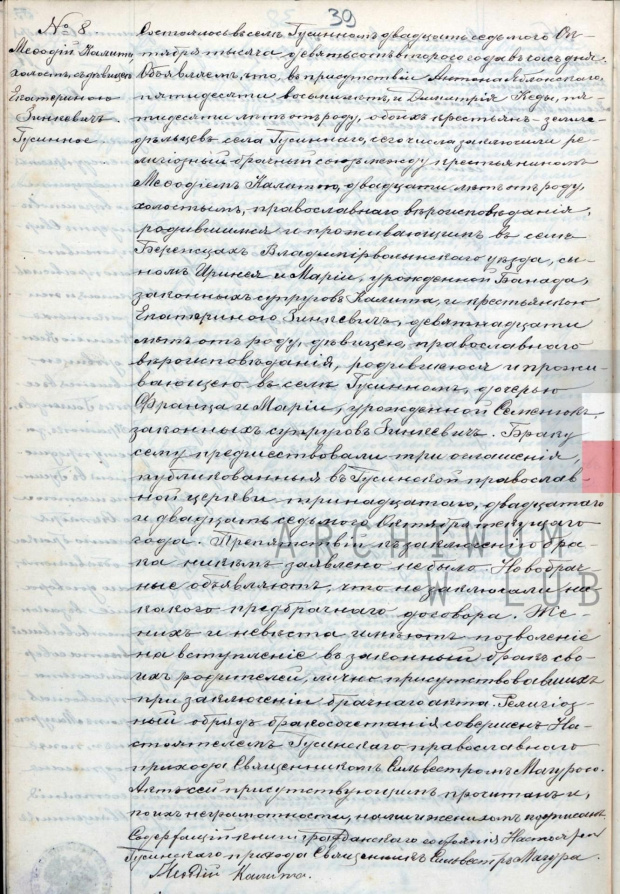 39
№ 8
Меѳодій Калита,
холостъ, съ дѣвицею
Екатериною
Зинкевичъ.
Гусинное
Состоялось въ селѣ Гусинномъ двадцать седьмого Ок-
тября тысяча девятьсотъ второго года въ часъ дня.
Объявляемъ, что, въ присутствіи Антона Яблонскаго,
пятидесяти восьми лѣтъ, и Димитрія Кеды, пя-
тидесяти лѣтъ отъ роду, обоихъ крестьянъ-земле-
дѣльцевъ села Гусиннаго, сего числа заключили ре-
лигіозный брачный союзъ между крестьяниномъ
Меѳодіемъ Калитою, двадцати лѣтъ отъ роду,
холостымъ, православнаго вѣроисповѣданія,
родившимся и проживающимъ въ селѣ
Бережцахъ Владимірволынскаго уѣзда, сы-
номъ Иринея и Маріи, урожденной Банада,
законныхъ супруговъ Калита, и крестьянкою
Екатериною Зинкевичъ, девятнадцати
лѣтъ отъ роду, дѣвицею, православнаго
вѣроисповѣданія, родившеюся и прожи-
вающею въ селѣ Гусинномъ, дочерью
Франца и Маріи, урожденной Семенюкъ,
законныхъ супруговъ Зинкевичъ. Браку
сему предшествовали три оглашенія,
публикованныя въ Гусинской православ-
ной церкви тринадцатаго, двадцатаго
и двадцать седьмого Октября текущаго
года. Препятствій къ заключенію бра-
ка никѣмъ заявлено не было. Новобрач-
ные объявляютъ, что не заключали ни-
какого предбрачнаго договора. Же-
нихъ и невѣста имѣютъ позволеніе
на вступленіе въ законный бракъ сво-
ихъ родителей, лично присутствовавшихъ
при заключеніи брачнаго акта. Религіоз-
ный обрядъ бракосочетанія совершенъ На-
стоятелемъ Гусинскаго православнаго
прихода Священникомъ Сильвестромъ Магурою.
Актъ сей присутствующимъ прочитанъ и,
по ихъ неграмотности, нами и женихомъ подписанъ.
Содержащій книги гражданскаго состоянія Настоятель
Гусинскаго прихода Священникъ Сильвестръ Магура.
Меѳодій Калита.
ARCHIWUM
W LUB